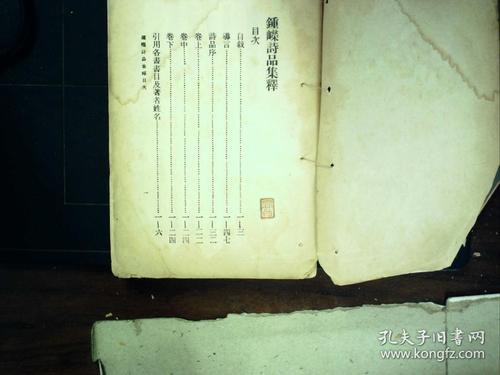 鍾嶸詩品集釋
目次
自敍……一—三
導言……一—四七
詩品序……一—三二
卷上……一—二二
卷中……一—二四
卷下……一—二四
引用各書書目及著者姓名……一—六
鍾嶸詩品集釋目次
一
孔夫子旧书网
www.kongfz.com